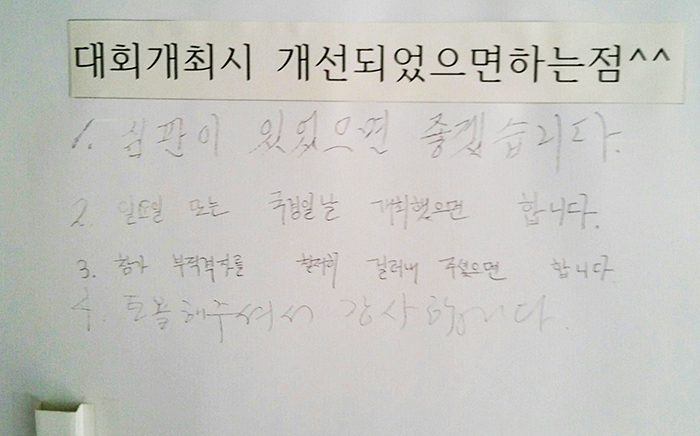 대회개최시 개선되었으면하는점^^
1. 심판이 있었으면 좋겠습니다.
2. 일요일 또는 국경일날 개최했으면 합니다.
3. 참가 부적격자를 철저히 걸러내 주셨으면 합니다.
4. 토봉해주셔서 감사합니다.